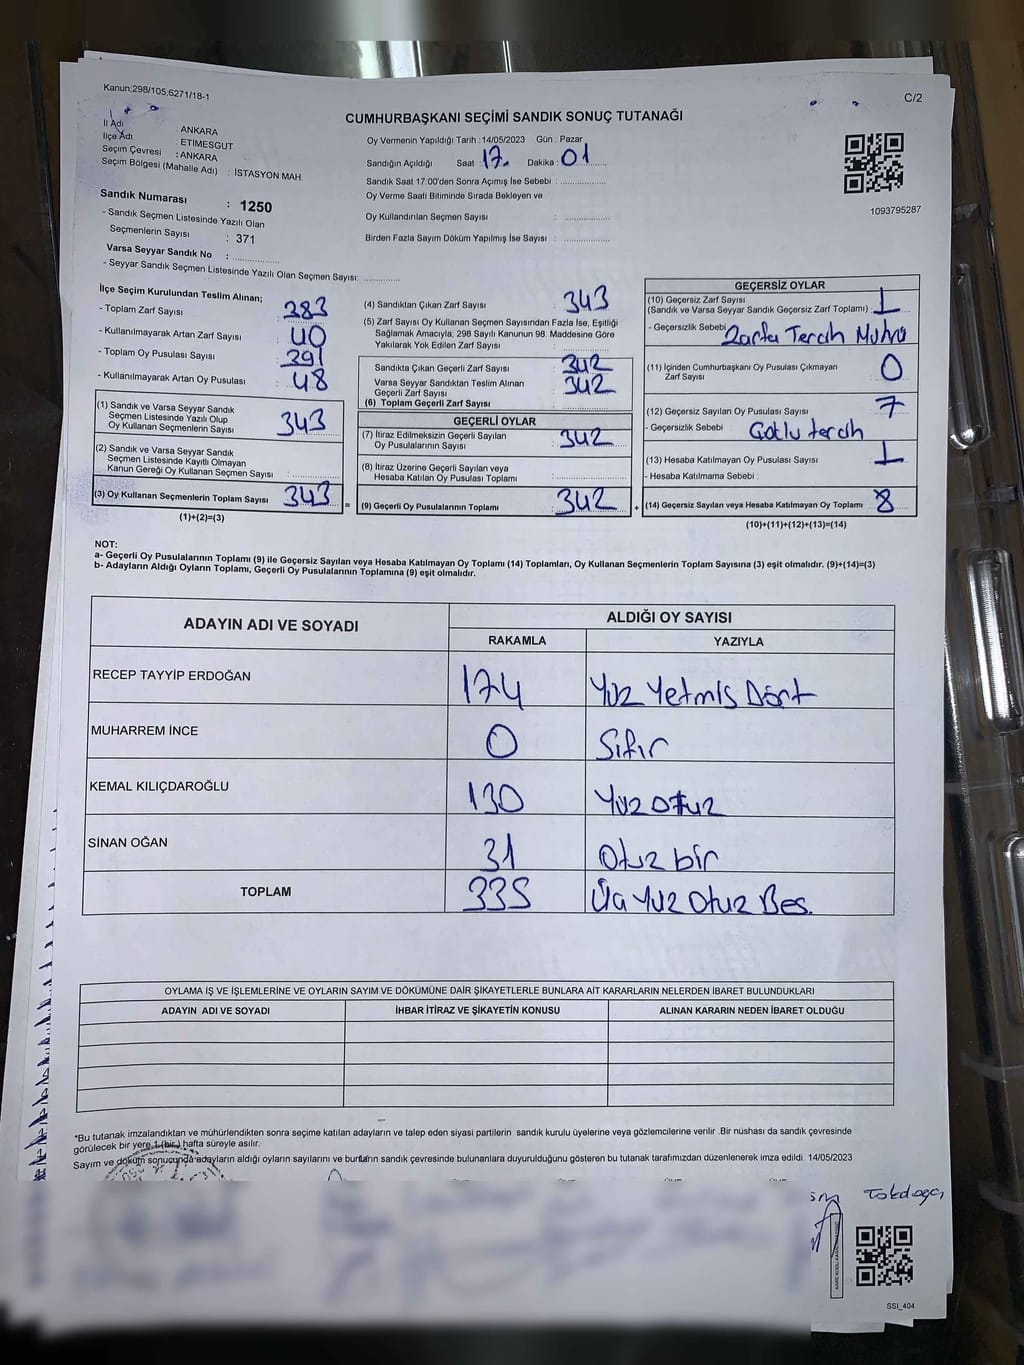 Kanun;298/105,6271/18-1
C/2
CUMHURBAŞKANI SEÇİMİ SANDIK SONUÇ TUTANAĞI
İl Adı : ANKARA
İlçe Adı : ETIMESGUT
Seçim Çevresi : ANKARA
Seçim Bölgesi (Mahalle Adı) : İSTASYON MAH.
Oy Vermenin Yapıldığı Tarih :14/05/2023 Gün : Pazar
Sandığın Açıldığı Saat : 17. Dakika : 01
Sandık Saat 17:00'den Sonra Açımış İse Sebebi :
Oy Verme Saati Bitiminde Sırada Bekleyen ve
Oy Kullandırılan Seçmen Sayısı :
Birden Fazla Sayım Döküm Yapılmış İse Sayısı :
1093795287
Sandık Numarası : 1250
- Sandık Seçmen Listesinde Yazılı Olan
Seçmenlerin Sayısı : 371
Varsa Seyyar Sandık No :
- Seyyar Sandık Seçmen Listesinde Yazılı Olan Seçmen Sayısı:
İlçe Seçim Kurulundan Teslim Alınan;
- Toplam Zarf Sayısı : 383
- Kullanılmayarak Artan Zarf Sayısı : 40
- Toplam Oy Pusulası Sayısı : 391
- Kullanılmayarak Artan Oy Pusulası : 48
(1) Sandık ve Varsa Seyyar Sandık
Seçmen Listesinde Yazılı Olup
Oy Kullanan Seçmenlerin Sayısı : 343
(2) Sandık ve Varsa Seyyar Sandık
Seçmen Listesinde Kayıtlı Olmayan
Kanun Gereği Oy Kullanan Seçmen Sayısı :
(3) Oy Kullanan Seçmenlerin Toplam Sayısı : 343 =
(1)+(2)=(3)
(4) Sandıktan Çıkan Zarf Sayısı : 343
(5) Zarf Sayısı Oy Kullanan Seçmen Sayısından Fazla İse, Eşitliği
Sağlamak Amacıyla; 298 Sayılı Kanunun 98. Maddesine Göre
Yakılarak Yok Edilen Zarf Sayısı :
Sandıkta Çıkan Geçerli Zarf Sayısı : 342
Varsa Seyyar Sandıktan Teslim Alınan
Geçerli Zarf Sayısı : 342
(6) Toplam Geçerli Zarf Sayısı :
GEÇERLİ OYLAR
(7) İtiraz Edilmeksizin Geçerli Sayılan
Oy Pusulalarının Sayısı : 342
(8) İtiraz Üzerine Geçerli Sayılan veya
Hesaba Katılan Oy Pusulası Toplamı :
(9) Geçerli Oy Pusulalarının Toplamı : 342 +
GEÇERSİZ OYLAR
(10) Geçersiz Zarf Sayısı
(Sandık ve Varsa Seyyar Sandık Geçersiz Zarf Toplamı) : 1
- Geçersizlik Sebebi : Zarfta Tercih Mührü
(11) İçinden Cumhurbaşkanı Oy Pusulası Çıkmayan
Zarf Sayısı : 0
(12) Geçersiz Sayılan Oy Pusulası Sayısı : 7
- Geçersizlik Sebebi : Çoklu tercih
(13) Hesaba Katılmayan Oy Pusulası Sayısı : 1
- Hesaba Katılmama Sebebi :
(14) Geçersiz Sayılan veya Hesaba Katılmayan Oy Toplamı : 8
(10)+(11)+(12)+(13)=(14)
NOT:
a- Geçerli Oy Pusulalarının Toplamı (9) ile Geçersiz Sayılan veya Hesaba Katılmayan Oy Toplamı (14) Toplamları, Oy Kullanan Seçmenlerin Toplam Sayısına (3) eşit olmalıdır. (9)+(14)=(3)
b- Adayların Aldığı Oyların Toplamı, Geçerli Oy Pusulalarının Toplamına (9) eşit olmalıdır.
ADAYIN ADI VE SOYADI ALDIĞI OY SAYISI
RAKAMLA YAZIYLA
RECEP TAYYİP ERDOĞAN 174 Yüz Yetmiş Dört
MUHARREM İNCE 0 Sıfır
KEMAL KILIÇDAROĞLU 130 Yüz otuz
SİNAN OĞAN 31 Otuz bir
TOPLAM 335 Üç Yüz Otuz Beş.
OYLAMA İŞ VE İŞLEMLERİNE VE OYLARIN SAYIM VE DÖKÜMÜNE DAİR ŞİKAYETLERLE BUNLARA AİT KARARLARIN NELERDEN İBARET BULUNDUKLARI
ADAYIN ADI VE SOYADI İHBAR İTİRAZ VE ŞİKAYETİN KONUSU ALINAN KARARIN NEDEN İBARET OLDUĞU
*Bu tutanak imzalandıktan ve mühürlendikten sonra seçime katılan adayların ve talep eden siyasi partilerin sandık kurulu üyelerine veya gözlemcilerine verilir .Bir nüshası da sandık çevresinde
görülecek bir yere 1 (bir ) hafta süreyle asılır.
Sayım ve döküm sonucunda adayların aldığı oyların sayılarını ve bunların sandık çevresinde bulunanlara duyurulduğunu gösteren bu tutanak tarafımızdan düzenlenerek imza edildi. 14/05/2023
SSI_404